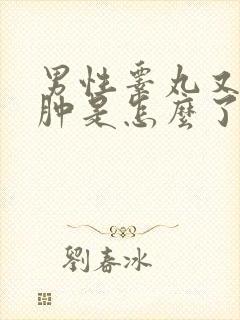 男性睾丸又
肿是怎麼了
劉春冰